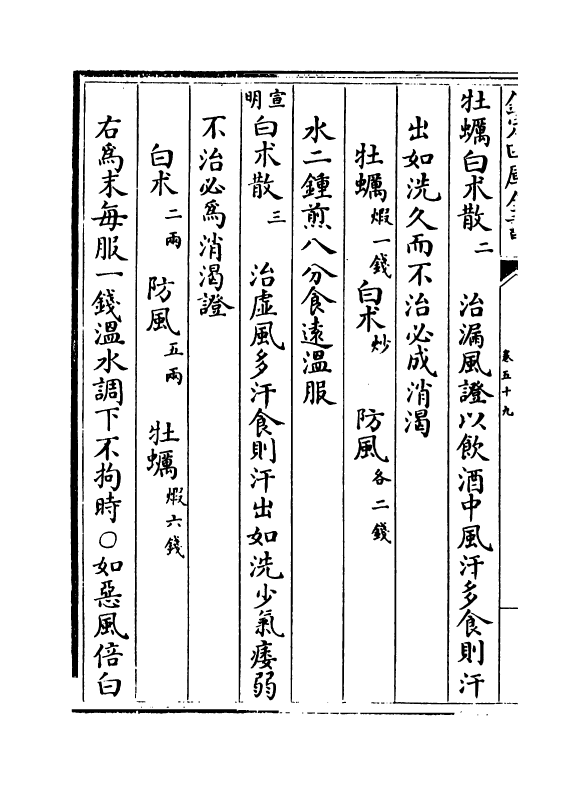 卷五十九
牡蠣白朮散二　治漏風證以飲酒中風汗多食則汗
出如洗久而不治必成消渴
牡蠣煅一錢白朮炒　防風各二錢
水二鍾煎八分食遠溫服
宣明白朮散三　治虛風多汗食則汗出如洗少氣痿弱
不治必為消渴證
白朮二兩　防風五兩　牡蠣煅六錢
右為末每服一錢溫水調下不拘時〇如惡風倍白